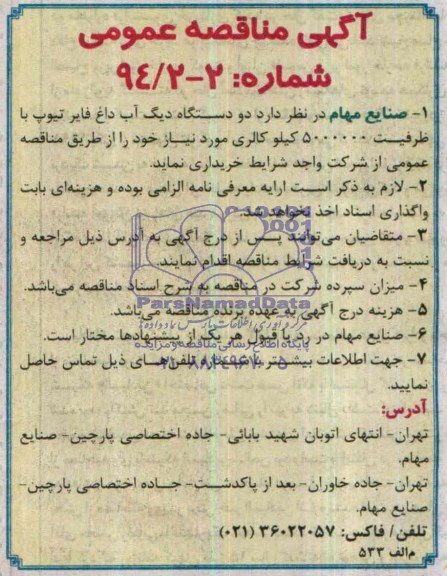 آگهی مناقصه عمومی
شماره: ۲-۹٤/۲
۱- صنایع مهام در نظر دارد دو دستگاه دیگ آب داغ فایر تیوپ با
ظرفیت ۵۰۰۰۰۰۰ کیلو کالری مورد نیاز خود را از طریق مناقصه
عمومی از شرکت واجد شرایط خریداری نماید.
۲- لازم به ذکر است ارایه معرفی نامه الزامی بوده و هزینه‌ای بابت
واگذاری اسناد اخذ نخواهد شد.
۳- متقاضیان می‌توانند پس از درج آگهی به آدرس ذیل مراجعه و
نسبت به دریافت شرایط مناقصه اقدام نمایند.
۴- میزان سپرده شرکت در مناقصه به شرح اسناد مناقصه می‌باشد.
ParsNamadData
۵- هزینه درج آگهی به عهده برنده مناقصه می‌باشد.
۶- صنایع مهام در رد یا قبول هر یک از پیشنهادها مختار است.
پایگاه اطلاع رسانی مناقصه و مزایده
۷- جهت اطلاعات بیشتر با تلفن‌های ذیل تماس حاصل
نمایید.
آدرس:
تهران- انتهای اتوبان شهید بابائی- جاده اختصاصی پارچین- صنایع
مهام.
تهران- جاده خاوران- بعد از پاکدشت- جاده اختصاصی پارچین-
صنایع مهام.
تلفن/ فاکس: ۳۶۰۲۲۰۵۷ (۰۲۱)
م‌الف ۵۳۳